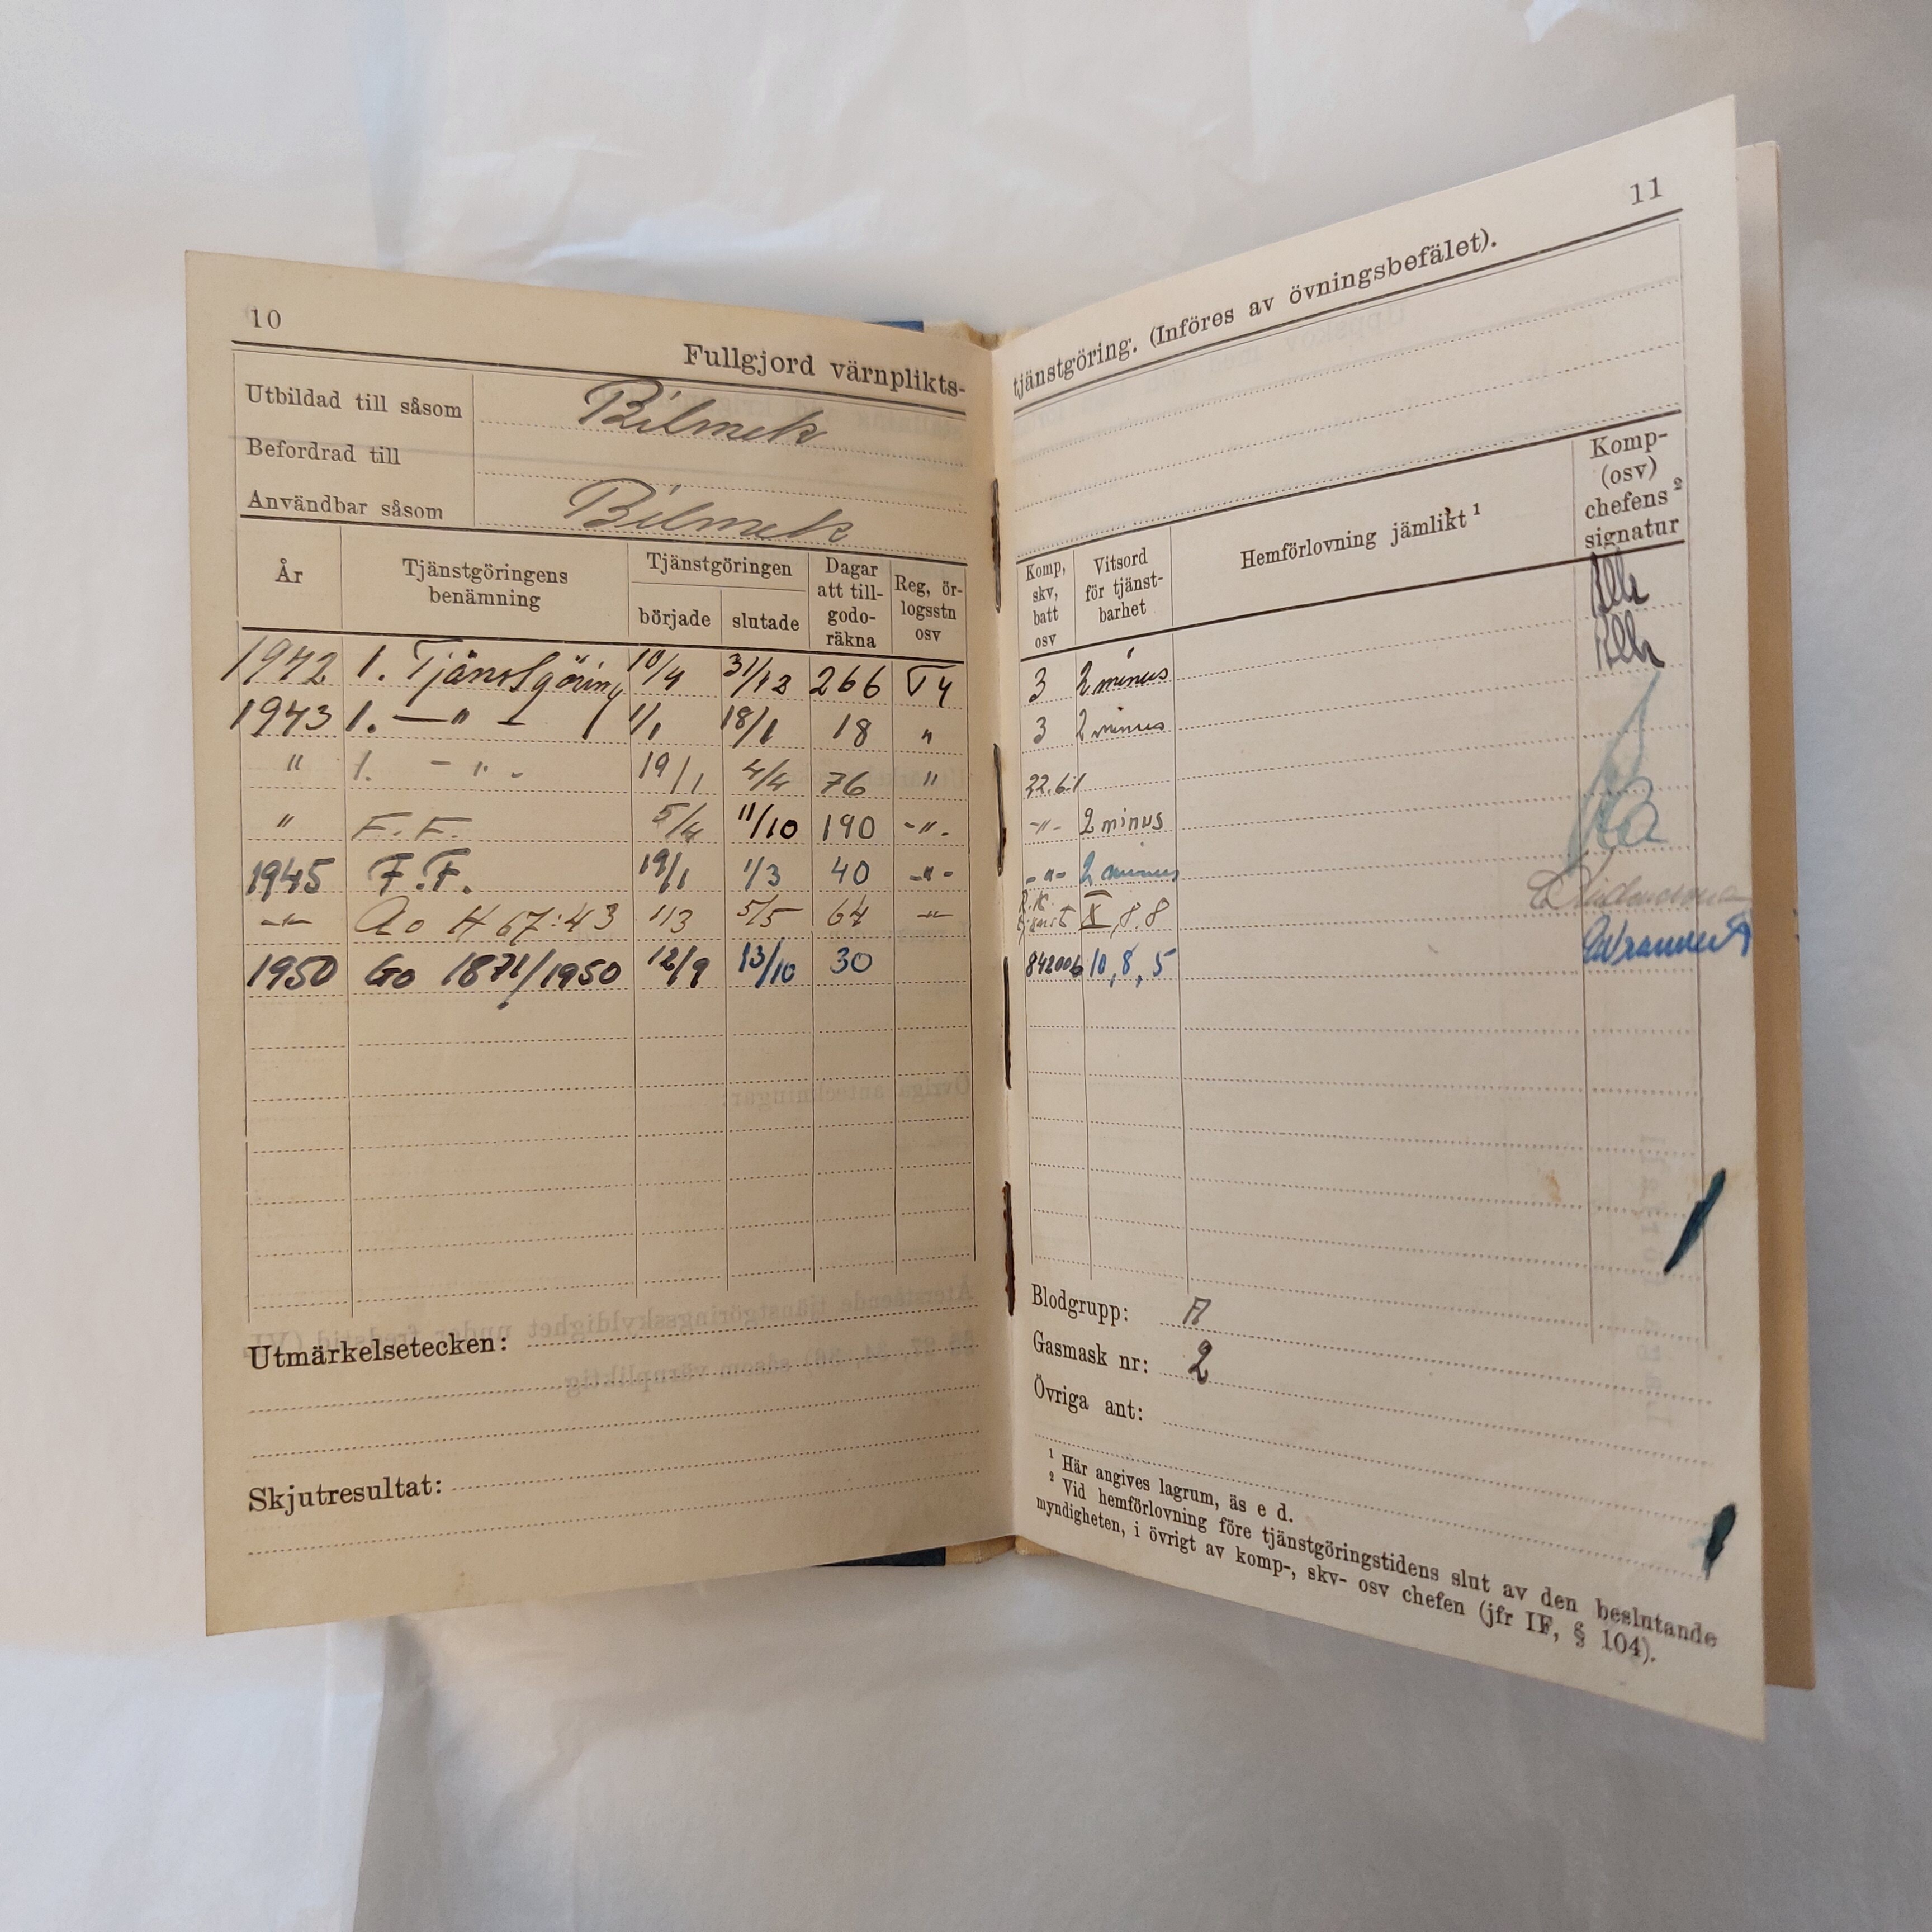 10
Fullgjord värnplikts-
Utbildad till såsom Bilmek
Befordrad till
Användbar såsom Bilmek
År Tjänstgöringens benämning Tjänstgöringen började slutade Dagar att till-godo-räkna Reg, ör-logsstn osv
1942 1. Tjänstgöring 10/4 31/12 266 T4
1943 1. —"— 1/1 18/1 18 "
" 1. - " - 19/1 4/4 76 "
" F.F. 5/4 11/10 190 -"-
1945 F.F. 19/1 1/3 40 -"-
-"- Ao H 67:43 1/3 5/5 64 -"-
1950 Go 1871/1950 12/9 13/10 30
Utmärkelsetecken:
Skjutresultat:
11
tjänstgöring. (Införes av övningsbefälet).
Komp, skv, batt osv Vitsord för tjänst-barhet Hemförlovning jämlikt ¹ Komp- (osv) chefens ² signatur
3 2 minus
3 2 minus
22.bil
-"- 2 minus
-"- 2 minus
X, 8.8
842006 10, 8, 5
Blodgrupp: A
Gasmask nr: 2
Övriga ant:
¹ Här angives lagrum, äs e d.
² Vid hemförlovning före tjänstgöringstidens slut av den beslutande
myndigheten, i övrigt av komp-, skv- osv chefen (jfr IF, § 104).